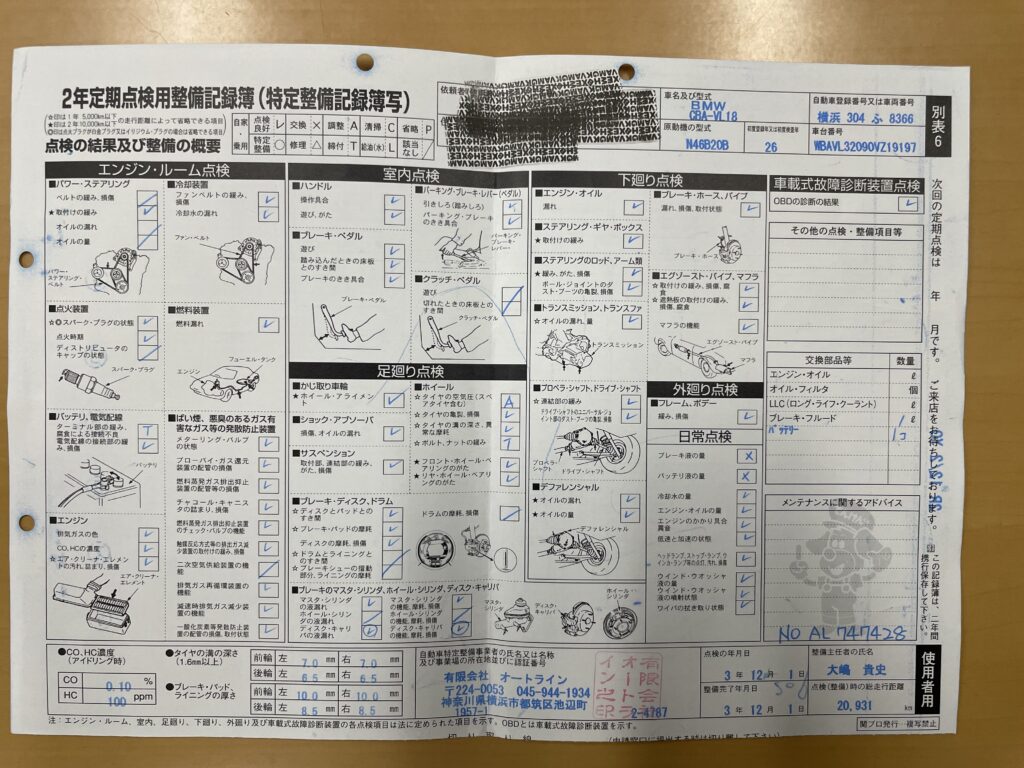 2年定期点検用整備記録簿(特定整備記録簿写)
☆印は1年 5,000km以下
★印は2年10,000km以下の走行距離によって省略できる項目
◎印は点火プラグが白金プラグ又はイリジウム・プラグの場合は省略できる項目
点検の結果及び整備の概要
自家・乗用
点検良好 レ 交換 × 調整 A 清掃 C 省略 P
特定整備 ○ 修理 △ 締付 T 給油(水) L 該当なし /
依頼者
車名及び型式
BMW
CBA-VL18
自動車登録番号又は車両番号
横浜 304 ふ 8366
原動機の型式
N46B20B
初度登録年又は初度検査年
26
車台番号
WBAVL32090VZ19197
別表6
エンジン・ルーム点検
■パワー・ステアリング
ベルトの緩み、損傷
★取付けの緩み
オイルの漏れ
オイルの量
パワー・ステアリング・ベルト
■冷却装置
ファンベルトの緩み、損傷
冷却水の漏れ
ファン・ベルト
■点火装置
☆◎スパーク・プラグの状態
点火時期
ディストリビュータのキャップの状態
スパーク・プラグ
■燃料装置
燃料漏れ
フューエル・タンク
エンジン
■バッテリ、電気配線
ターミナル部の緩み、腐食による接続不良
T
電気配線の接続部の緩み、損傷
バッテリ
■ばい煙、悪臭のあるガス有害なガス等の発散防止装置
メターリング・バルブの状態
ブローバイ・ガス還元装置の配管の損傷
燃料蒸発ガス排出抑止装置の配管等の損傷
チャコール・キャニスタの詰まり、損傷
燃料蒸発ガス排出抑止装置のチェック・バルブの機能
触媒反応方式等の排出ガス減少装置の取付けの緩み、損傷
二次空気供給装置の機能
排気ガス再循環装置の機能
減速時排気ガス減少装置の機能
一酸化炭素等発散防止装置の配管の損傷、取付状態
■エンジン
排気ガスの色
CO、HCの濃度
☆エア・クリーナ・エレメントの汚れ、詰まり、損傷
エア・クリーナ・エレメント
室内点検
■ハンドル
操作具合
遊び、がた
■ブレーキ・ペダル
遊び
踏み込んだときの床板とのすき間
ブレーキのきき具合
ブレーキ・ペダル
■パーキング・ブレーキ・レバー(ペダル)
引きしろ(踏みしろ)
パーキング・ブレーキのきき具合
パーキング・ブレーキ・レバー
■クラッチ・ペダル
遊び
切れたときの床板とのすき間
クラッチ・ペダル
足廻り点検
■かじ取り車輪
★ホイール・アライメント
■ショック・アブソーバ
損傷、オイルの漏れ
■サスペンション
取付部、連結部の緩み、がた、損傷
■ホイール
☆タイヤの空気圧(スペアタイヤ含む)
A
☆タイヤの亀裂、損傷
☆タイヤの溝の深さ、異常な摩耗
☆ボルト、ナットの緩み
T
★フロント・ホイール・ベアリングのがた
★リヤ・ホイール・ベアリングのがた
■ブレーキ・ディスク、ドラム
☆ディスクとパッドとのすき間
☆ブレーキ・パッドの摩耗
ディスクの摩耗、損傷
☆ドラムとライニングとのすき間
☆ブレーキシューの摺動部分、ライニングの摩耗
ドラムの摩耗、損傷
■ブレーキのマスタ・シリンダ、ホイール・シリンダ、ディスク・キャリパ
マスタ・シリンダの液漏れ
ホイール・シリンダの液漏れ
ディスク・キャリパの液漏れ
マスタ・シリンダの機能、摩耗、損傷
ホイール・シリンダの機能、摩耗、損傷
ディスク・キャリパの機能、摩耗、損傷
マスタ・シリンダ
ディスク・キャリパ
ホイール・シリンダ
下廻り点検
■エンジン・オイル
漏れ
■ステアリング・ギヤ・ボックス
★取付けの緩み
■ステアリングのロッド、アーム類
★緩み、がた、損傷
ボール・ジョイントのダスト・ブーツの亀裂、損傷
■トランスミッション、トランスファ
☆オイルの漏れ、量
トランスミッション
■ブレーキ・ホース、パイプ
漏れ、損傷、取付状態
ブレーキ・ホース
■エグゾースト・パイプ、マフラ
☆取付けの緩み、損傷、腐食
☆遮熱板の取付けの緩み、損傷、腐食
マフラの機能
エグゾースト・パイプ
マフラ
■プロペラ・シャフト、ドライブ・シャフト
☆連結部の緩み
ドライブ・シャフトのユニバーサル・ジョイント部のダスト・ブーツの亀裂、損傷
プロペラ・シャフト
ドライブ・シャフト
■デファレンシャル
★オイルの漏れ
★オイルの量
デファレンシャル
外廻り点検
■フレーム、ボデー
緩み、損傷
日常点検
ブレーキ液の量
×
バッテリ液の量
×
冷却水の量
エンジン・オイルの量
エンジンのかかり具合、異音
低速と加速の状態
ヘッドランプ、ストップ・ランプ、ウインカ・ランプ等の点灯、汚れ、損傷
ウインド・ウオッシャ液の量
ウインド・ウオッシャ液の噴射状態
ワイパの拭き取り状態
車載式故障診断装置点検
OBDの診断の結果
その他の点検・整備項目等
交換部品等 数量
エンジン・オイル ℓ
オイル・フィルタ 個
LLC(ロング・ライフ・クーラント) ℓ
ブレーキ・フルード 1 ℓ
バッテリー 1コ
メンテナンスに関するアドバイス
NO AL 747428
次回の定期点検は 年 月です。 ご来店をお待ちしております。
注 この記録簿は、二年間携行保存して下さい。
使用者用
●CO、HC濃度(アイドリング時)
CO 0.10 %
HC 100 ppm
●タイヤの溝の深さ(1.6mm以上)
前輪 左 7.0 mm 右 7.0 mm
後輪 左 6.5 mm 右 6.5 mm
●ブレーキ・パッド、ライニングの厚さ
前輪 左 10.0 mm 右 10.0 mm
後輪 左 8.5 mm 右 8.5 mm
自動車特定整備事業者の氏名又は名称及び事業場の所在地並びに認証番号
有限会社 オートライン
〒224-0053 045-944-1934
神奈川県横浜市都筑区池辺町
1957-1
2-4787
点検の年月日
3年 12月 1日
整備完了年月日
3年 12月 1日
整備主任者の氏名
大嶋 貴史
点検(整備)時の総走行距離
20,931 km
注:エンジン・ルーム、室内、足廻り、下廻り、外廻り及び車載式故障診断装置の各点検項目は法に定められた項目を示す。OBDとは車載式故障診断装置を示す。
関ブロ発行 複写禁止